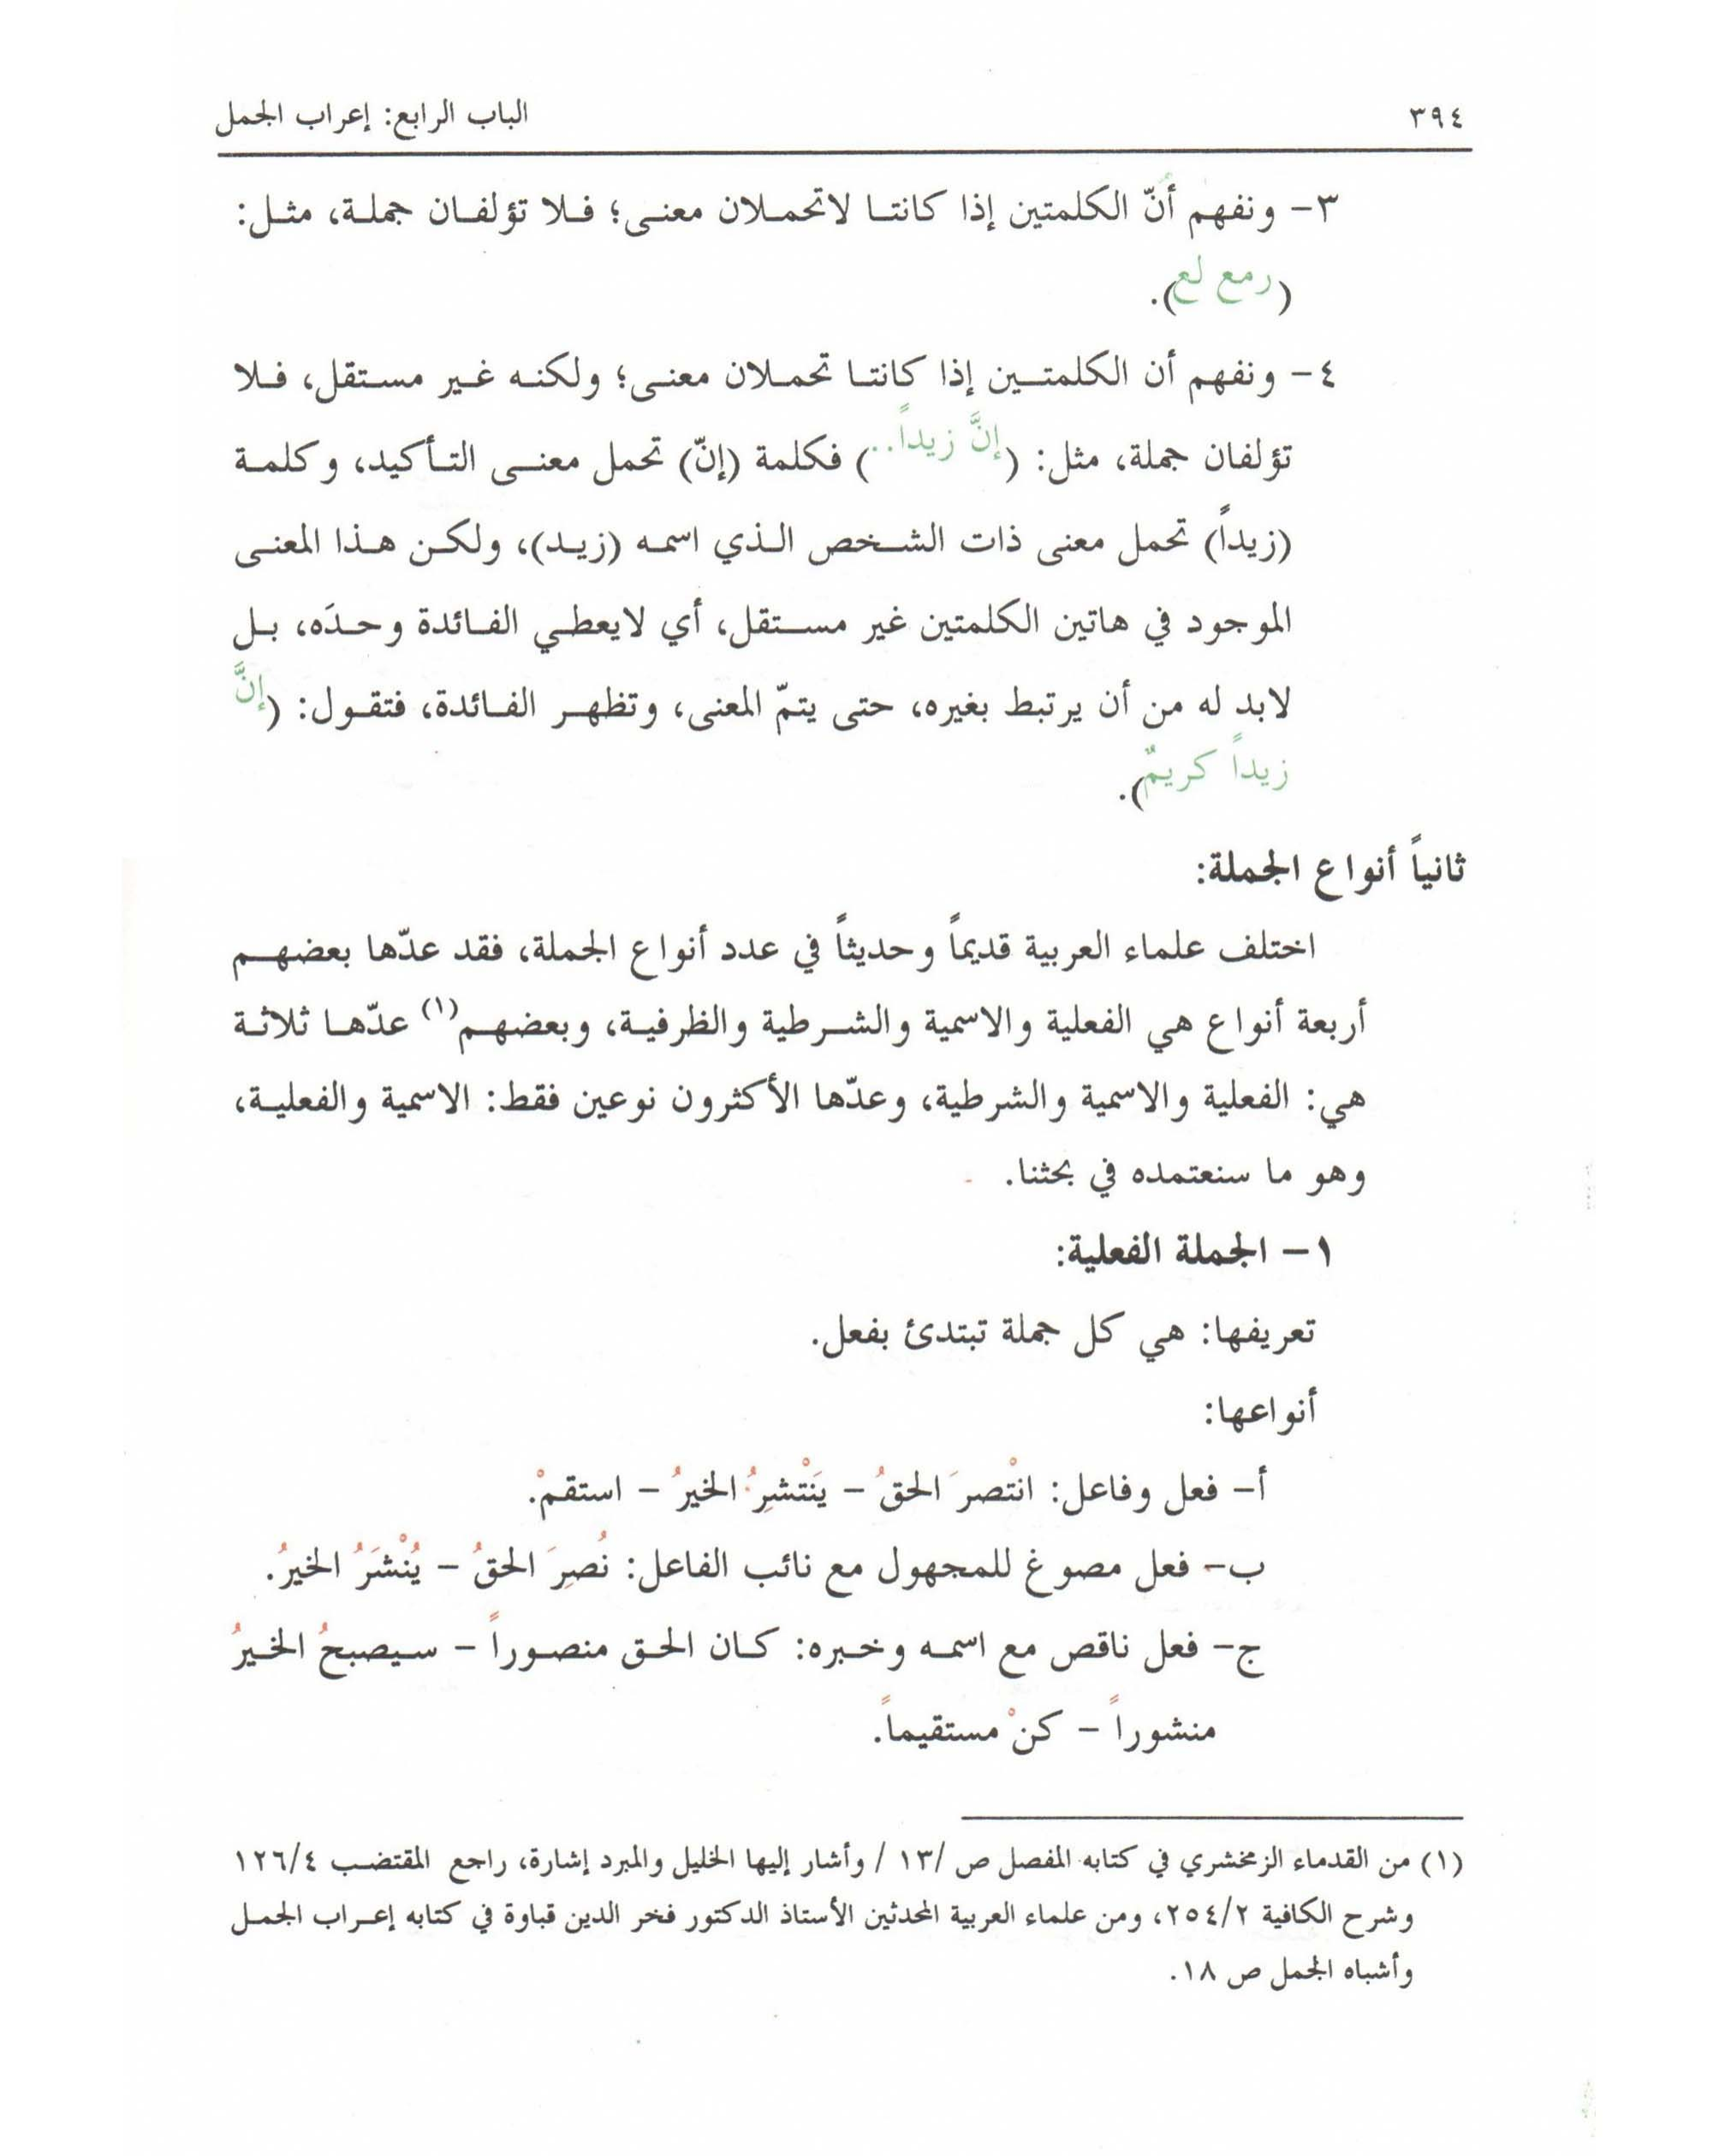 ٣٩٤
الباب الرابع: إعراب الجمل
٣- ونفهم أنّ الكلمتين إذا كانتا لاتحملان معنى؛ فلا تؤلفان جملة، مثل:
(رمع لع).
٤- ونفهم أن الكلمتين إذا كانتا تحملان معنى؛ ولكنه غير مستقل، فلا
تؤلفان جملة، مثل: (إنَّ زيداً..) فكلمة (إنّ) تحمل معنى التأكيد، وكلمة
(زيداً) تحمل معنى ذات الشخص الذي اسمه (زيد)، ولكن هذا المعنى
الموجود في هاتين الكلمتين غير مستقل، أي لايعطي الفائدة وحدَه، بل
لابد له من أن يرتبط بغيره، حتى يتمّ المعنى، وتظهر الفائدة، فتقول: (إنَّ
زيداً كريمٌ).
ثانياً أنواع الجملة:
اختلف علماء العربية قديماً وحديثاً في عدد أنواع الجملة، فقد عدّها بعضهم
أربعة أنواع هي الفعلية والاسمية والشرطية والظرفية، وبعضهم(١) عدّها ثلاثة
هي: الفعلية والاسمية والشرطية، وعدّها الأكثرون نوعين فقط: الاسمية والفعلية،
وهو ما سنعتمده في بحثنا.
١- الجملة الفعلية:
تعريفها: هي كل جملة تبتدئ بفعل.
أنواعها:
أ- فعل وفاعل: انْتصرَ الحقُ - يَنْتشرُ الخيرُ - استقمْ.
ب- فعل مصوغ للمجهول مع نائب الفاعل: نُصرَ الحقُ - يُنْشَرُ الخيرُ.
ج- فعل ناقص مع اسمه وخبره: كان الحق منصوراً - سيصبحُ الخيرُ
منشوراً - كنْ مستقيماً.
(١) من القدماء الزمخشري في كتابه المفصل ص /١٣/ وأشار إليها الخليل والمبرد إشارة، راجع المقتضب ١٢٦/٤
وشرح الكافية ٢٥٤/٢، ومن علماء العربية المحدثين الأستاذ الدكتور فخر الدين قباوة في كتابه إعراب الجمل
وأشباه الجمل ص ١٨.